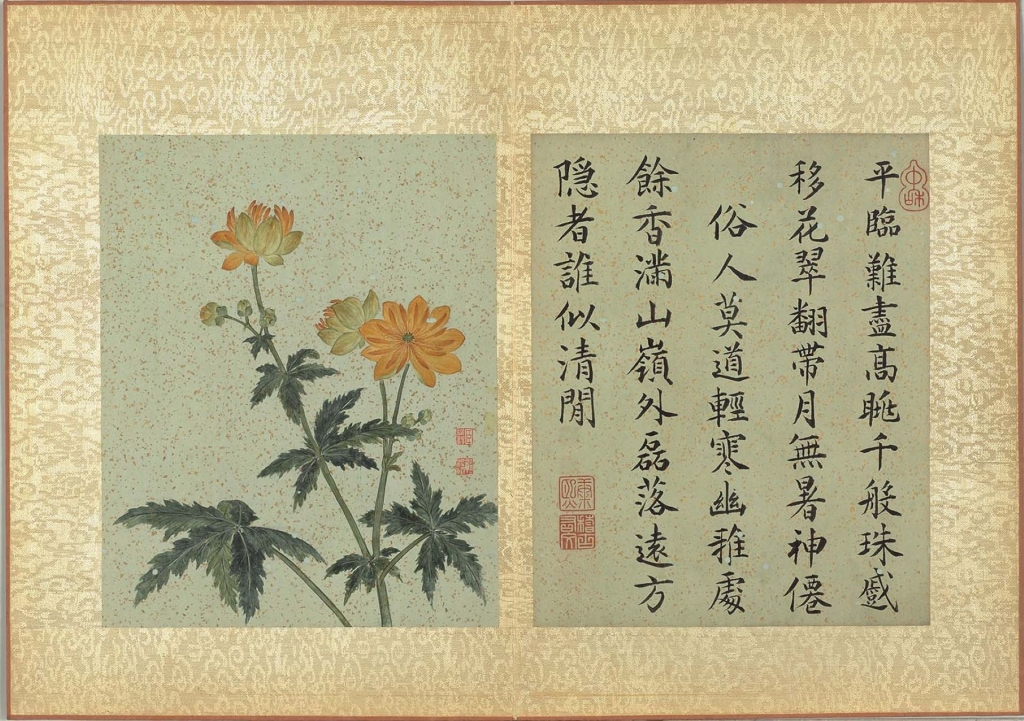 平臨難盡高眺千般珠感
移花翠翻帶月無暑神僊
俗人莫道輕寒幽雅處
餘香滿山嶺外磊落遠方
隱者誰似清閒